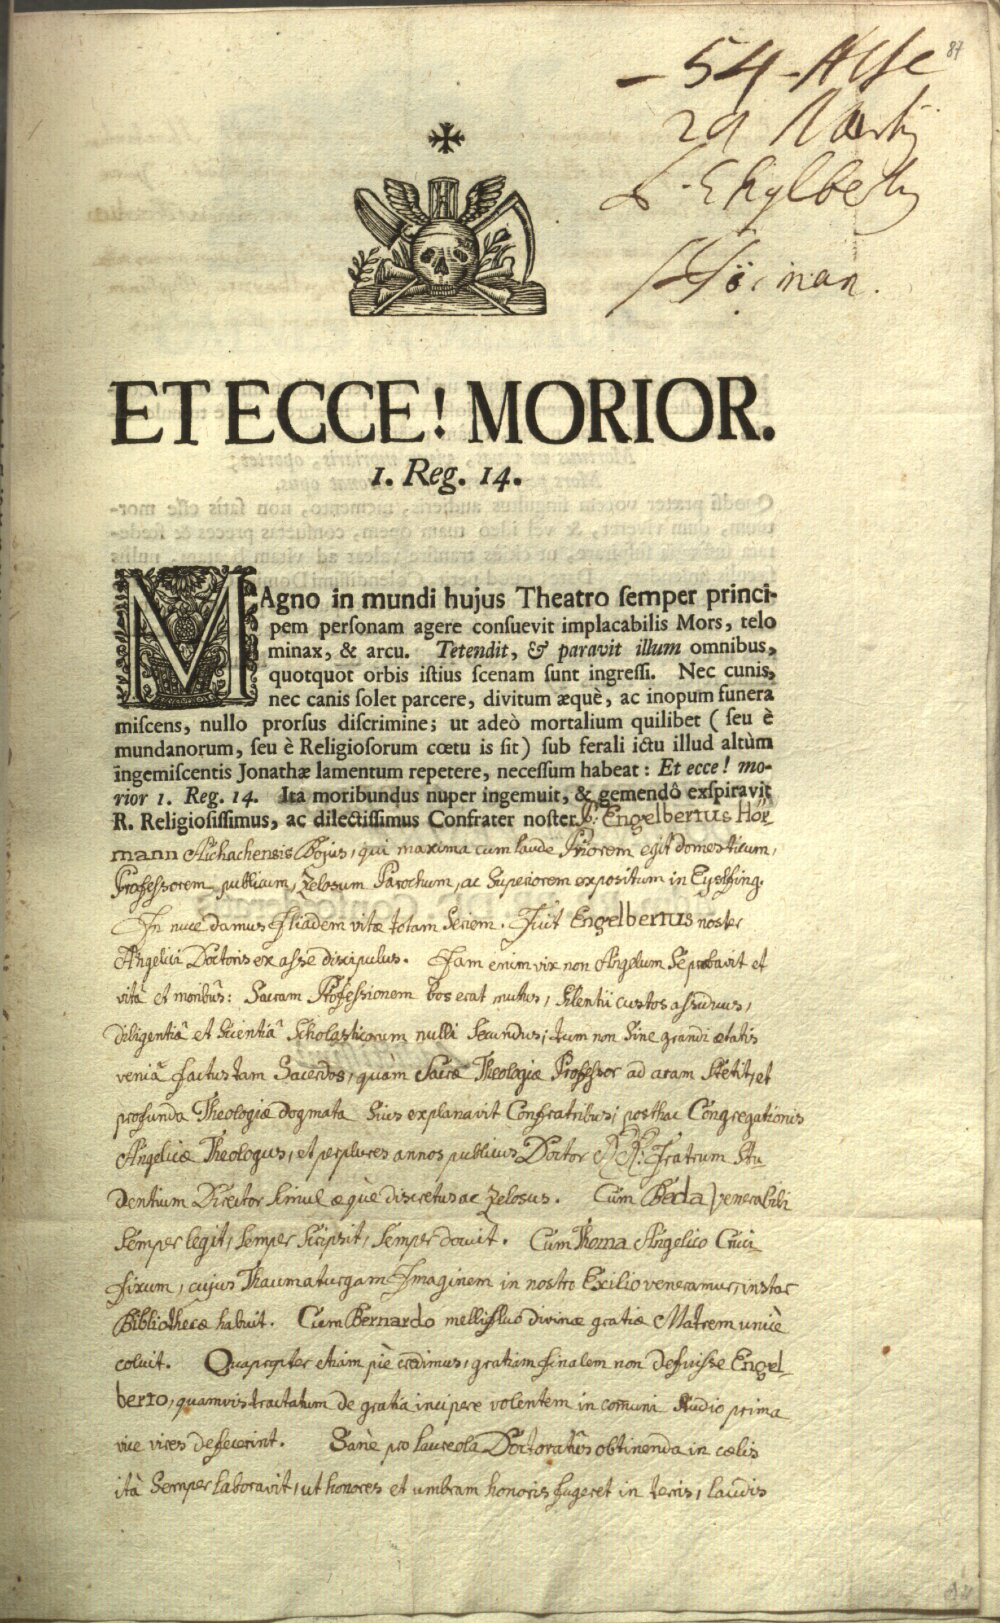 87
- 54 -
29 Martij
P. Engelberth
Hörman.
ET ECCE! MORIOR.
1. Reg. 14.
MAgno in mundi hujus Theatro semper princi-
pem personam agere consuevit implacabilis Mors, telo
minax, & arcu. Tetendit, & paravit illum omnibus,
quotquot orbis istius scenam sunt ingressi. Nec cunis,
nec canis solet parcere, divitum æquè, ac inopum funera
miscens, nullo prorsus discrimine; ut adeò mortalium quilibet (seu è
mundanorum, seu è Religiosorum cœtu is sit) sub ferali ictu illud altùm
ingemiscentis Jonathæ lamentum repetere, necessum habeat: Et ecce! mo-
rior 1. Reg. 14. Ita moribundus nuper ingemuit, & gemendô exspiravit
R. Religiosissimus, ac dilectissimus Confrater noster P: Engelbertus Hör
mann Aichachensis Bojus, qui maxima cum laude Priorem egit domesticum,
Professorem publicum, Zelosum Parochum, ac Superiorem expositum in Eyslfing.
In nuce damus Iliadem vitæ totam seriem. Fuit Engelbertus noster
Angelici Doctoris ex asse discipulus. Jam enim vix non Angelum se probavit et
vitâ et moribus: Sacram Professionem bos erat mutus, silentii custos assiduus,
diligentiâ et scientiâ Scholasticorum nulli secundus; tum non sine grandi ætatis
veniâ factus tam Sacerdos, quàm Sacræ Theologiæ Professor ad aram stetit, et
profunda Theologiæ dogmata suis explanavit Confratribus; posthac Congregationis
Angelicæ Theologus, et per plures annos publicus Doctor RR: Fratrum Stu
dentium Director simul æquè discretus ac zelosus. Cum Beda Venerabili
semper legit, semper scripsit, semper docuit. Cum Thoma Angelico Cruci
fixum, cujus Thaumaturgam Imaginem in nostro Exilio veneramur, instar
Bibliothecæ habuit. Cum Bernardo mellifluo divinæ gratiæ Matrem unicè
coluit. Quapropter etiam piè credimus, gratiam finalem non defuisse Engel-
berto, quamvis tractatum de gratia incipere volentem in comuni studio prima
vice vires defecerint. Sanè pro laureola Doctoratûs obtinenda in cælis
ità semper laboravit, ut honores et umbram honoris fugeret in terris, laudis